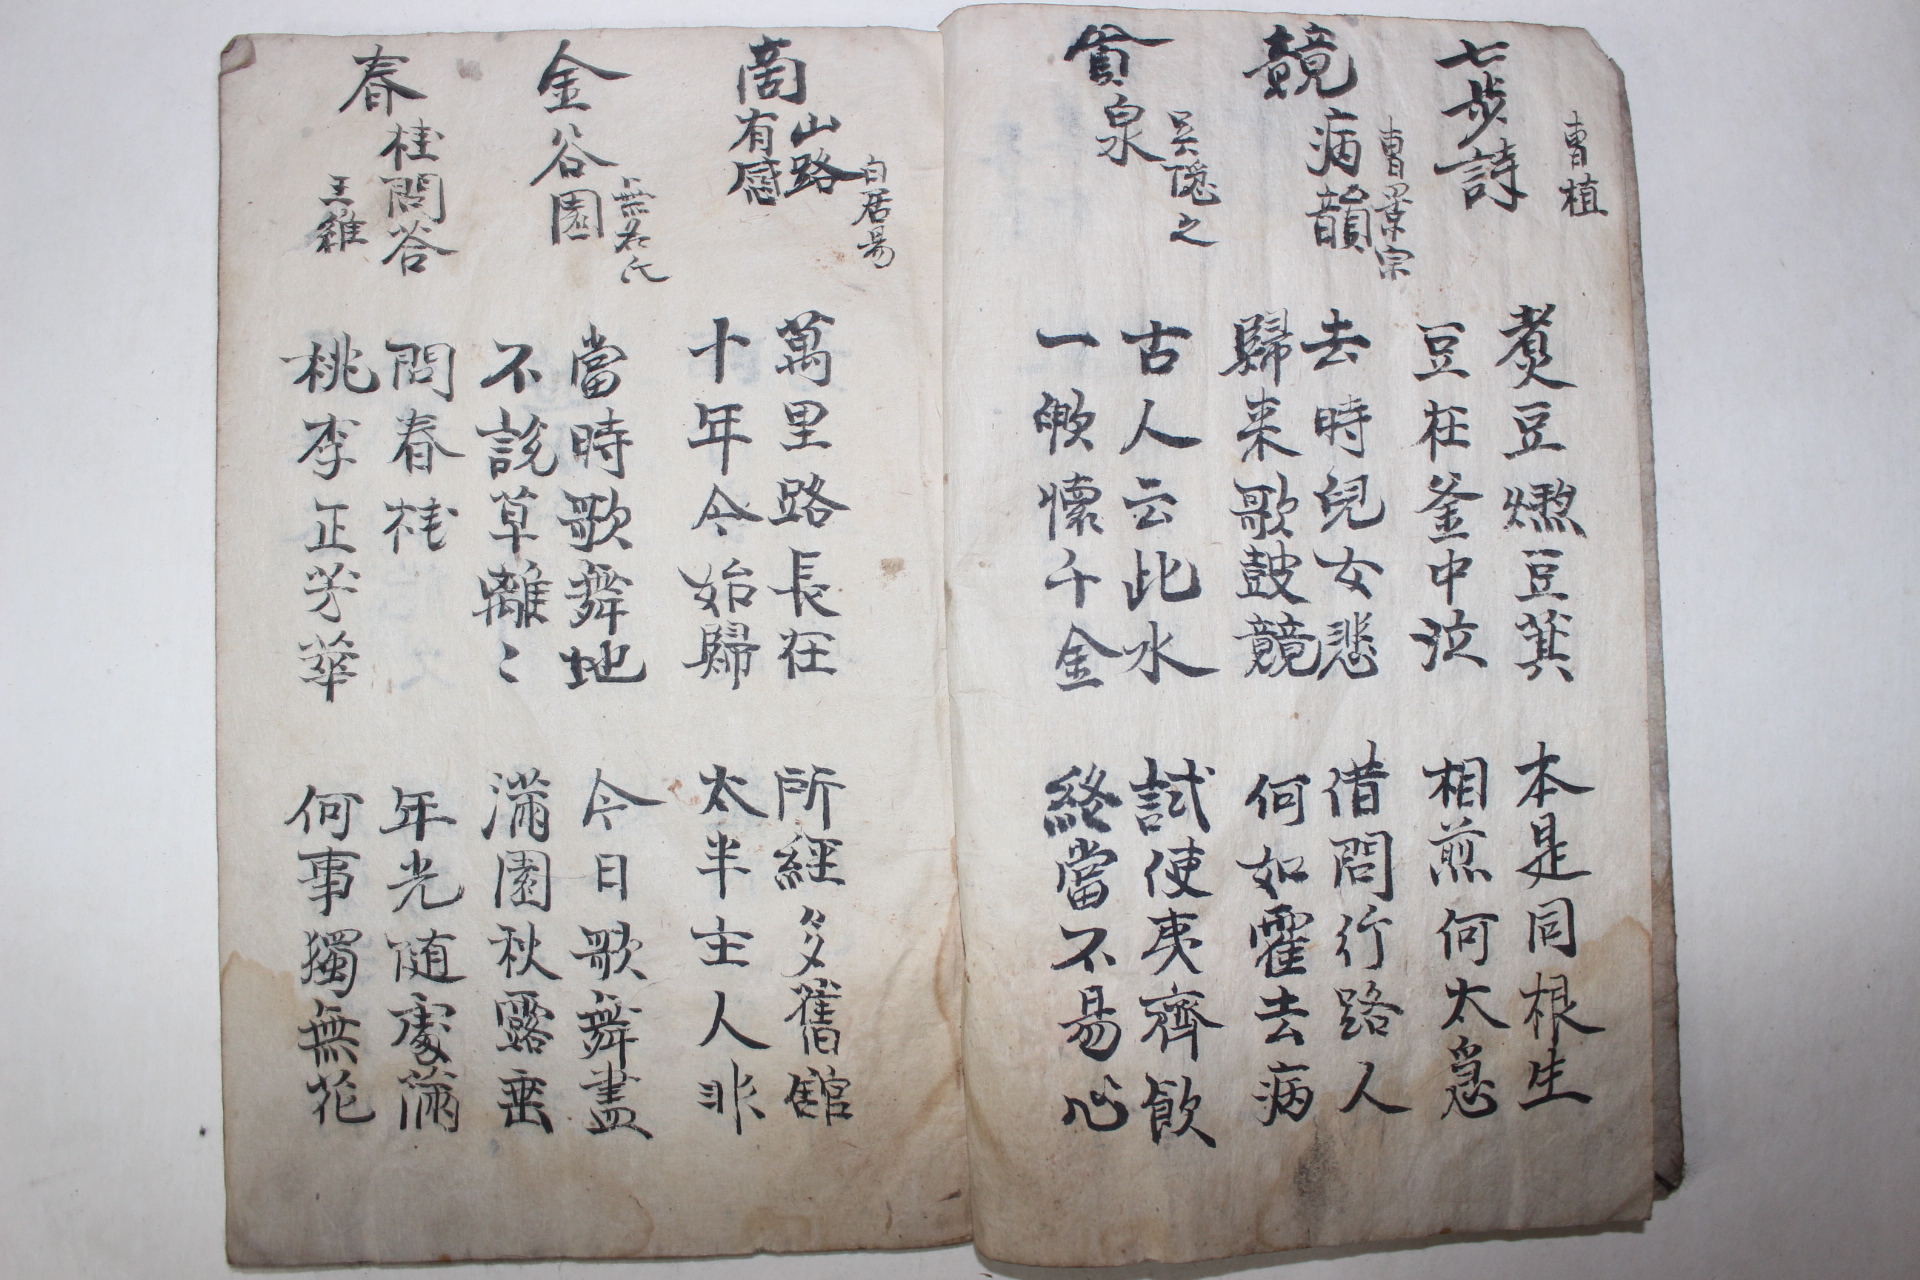 七步詩 曹植
煮豆燃豆萁 本是同根生
豆在釜中泣 相煎何太急
競病韻 曹景宗
去時兒女悲 借問行路人
歸来歌鼓競 何如霍去病
貪泉 吳隱之
古人云此水 試使夷齊飮
一歃懷千金 終當不易心
商山路有感 白居易
萬里路長在 所經多舊館
十年今始歸 太半主人非
金谷園 無名氏
當時歌舞地 今日歌舞盡
不說草離〻 滿園秋露垂
春桂問答 王維
問春桂 年光随處滿
桃李正芳華 何事獨無花